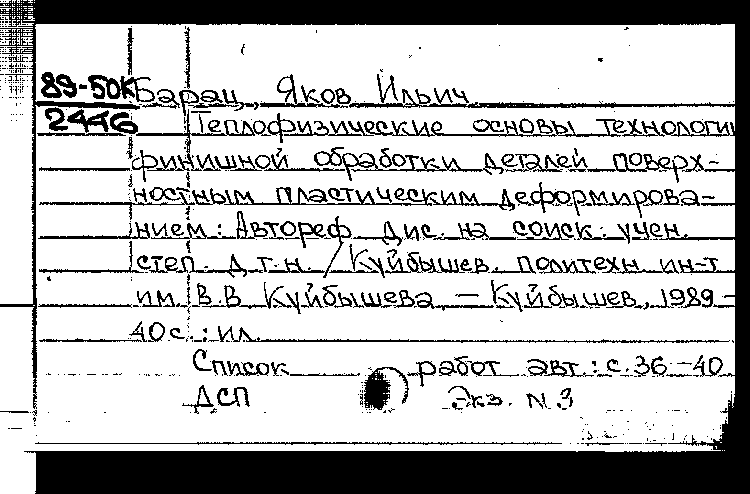 89-50К Барац, Яков Ильич
2446 Теплофизические основы технологии
финишной обработки деталей поверх-
ностным пластическим деформирова-
нием : Автореф. дис. на соиск. учен.
степ. д.т.н. / Куйбышев. политехн. ин-т
им. В.В. Куйбышева. — Куйбышев, 1989 -
40 с. : ил.
Список работ авт.: с. 36-40
ДСП Экз. № 3